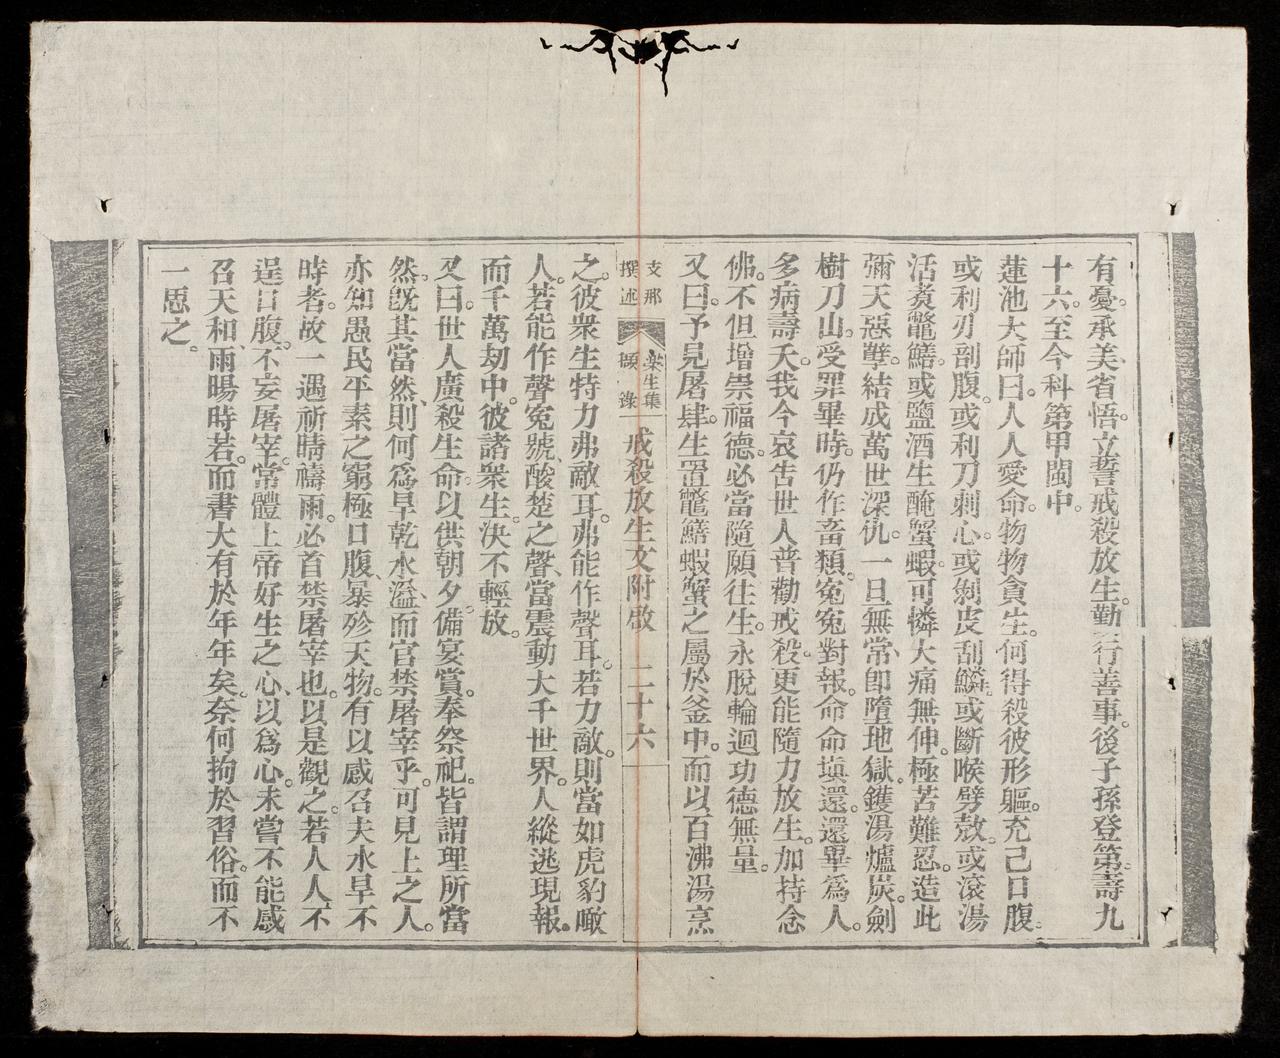 有憂。承美、省悟。立誓戒殺放生。勤行善事。後子孫登第。壽九
十六。至今科第甲閩中。
蓮池大師曰。人人愛命。物物貪生。何得殺彼形軀。充己口腹。
或利刃剖腹。或利刀刺心。或剝皮刮鱗。或斷喉劈殼。或滾湯
活煑鼈鱔。或鹽酒生醃蟹蝦。可憐大痛無伸。極苦難忍。造此
彌天惡孽。結成萬世深仇。一旦無常、卽墮地獄。鑊湯爐炭。劍
樹刀山。受罪畢時。仍作畜類。冤冤對報。命命塡還。還畢爲人。
多病壽夭。我今哀告世人。普勸戒殺。更能隨力放生。加持念
佛。不但增崇福德。必當隨願往生。永脫輪迴。功德無量。
又曰。予見屠肆。生置鼈鱔蝦蟹之屬於釜中。而以百沸湯烹
支那撰述 樂生集 頡錄 戒殺放生文附啟 二十六
之。彼衆生特力弗敵耳。弗能作聲耳。若力敵。則當如虎豹噉
人。若能作聲。冤號酸楚之聲、當震動大千世界。人縱逃現報。
而千萬劫中。彼諸衆生。決不輕放。
又曰。世人廣殺生命。以供朝夕。備宴賞。奉祭祀。皆謂理所當
然。旣其當然、則何爲旱乾水溢、而官禁屠宰乎。可見上之人。
亦知愚民平素之窮極口腹、暴殄天物。有以感召夫水旱不
時者。故一遇祈晴禱雨。必首禁屠宰也。以是觀之。若人人不
逞口腹。不妄屠宰。常體上帝好生之心、以爲心。未嘗不能感
召天和、雨暘時若。而書大有於年年矣。奈何拘於習俗。而不
一思之。